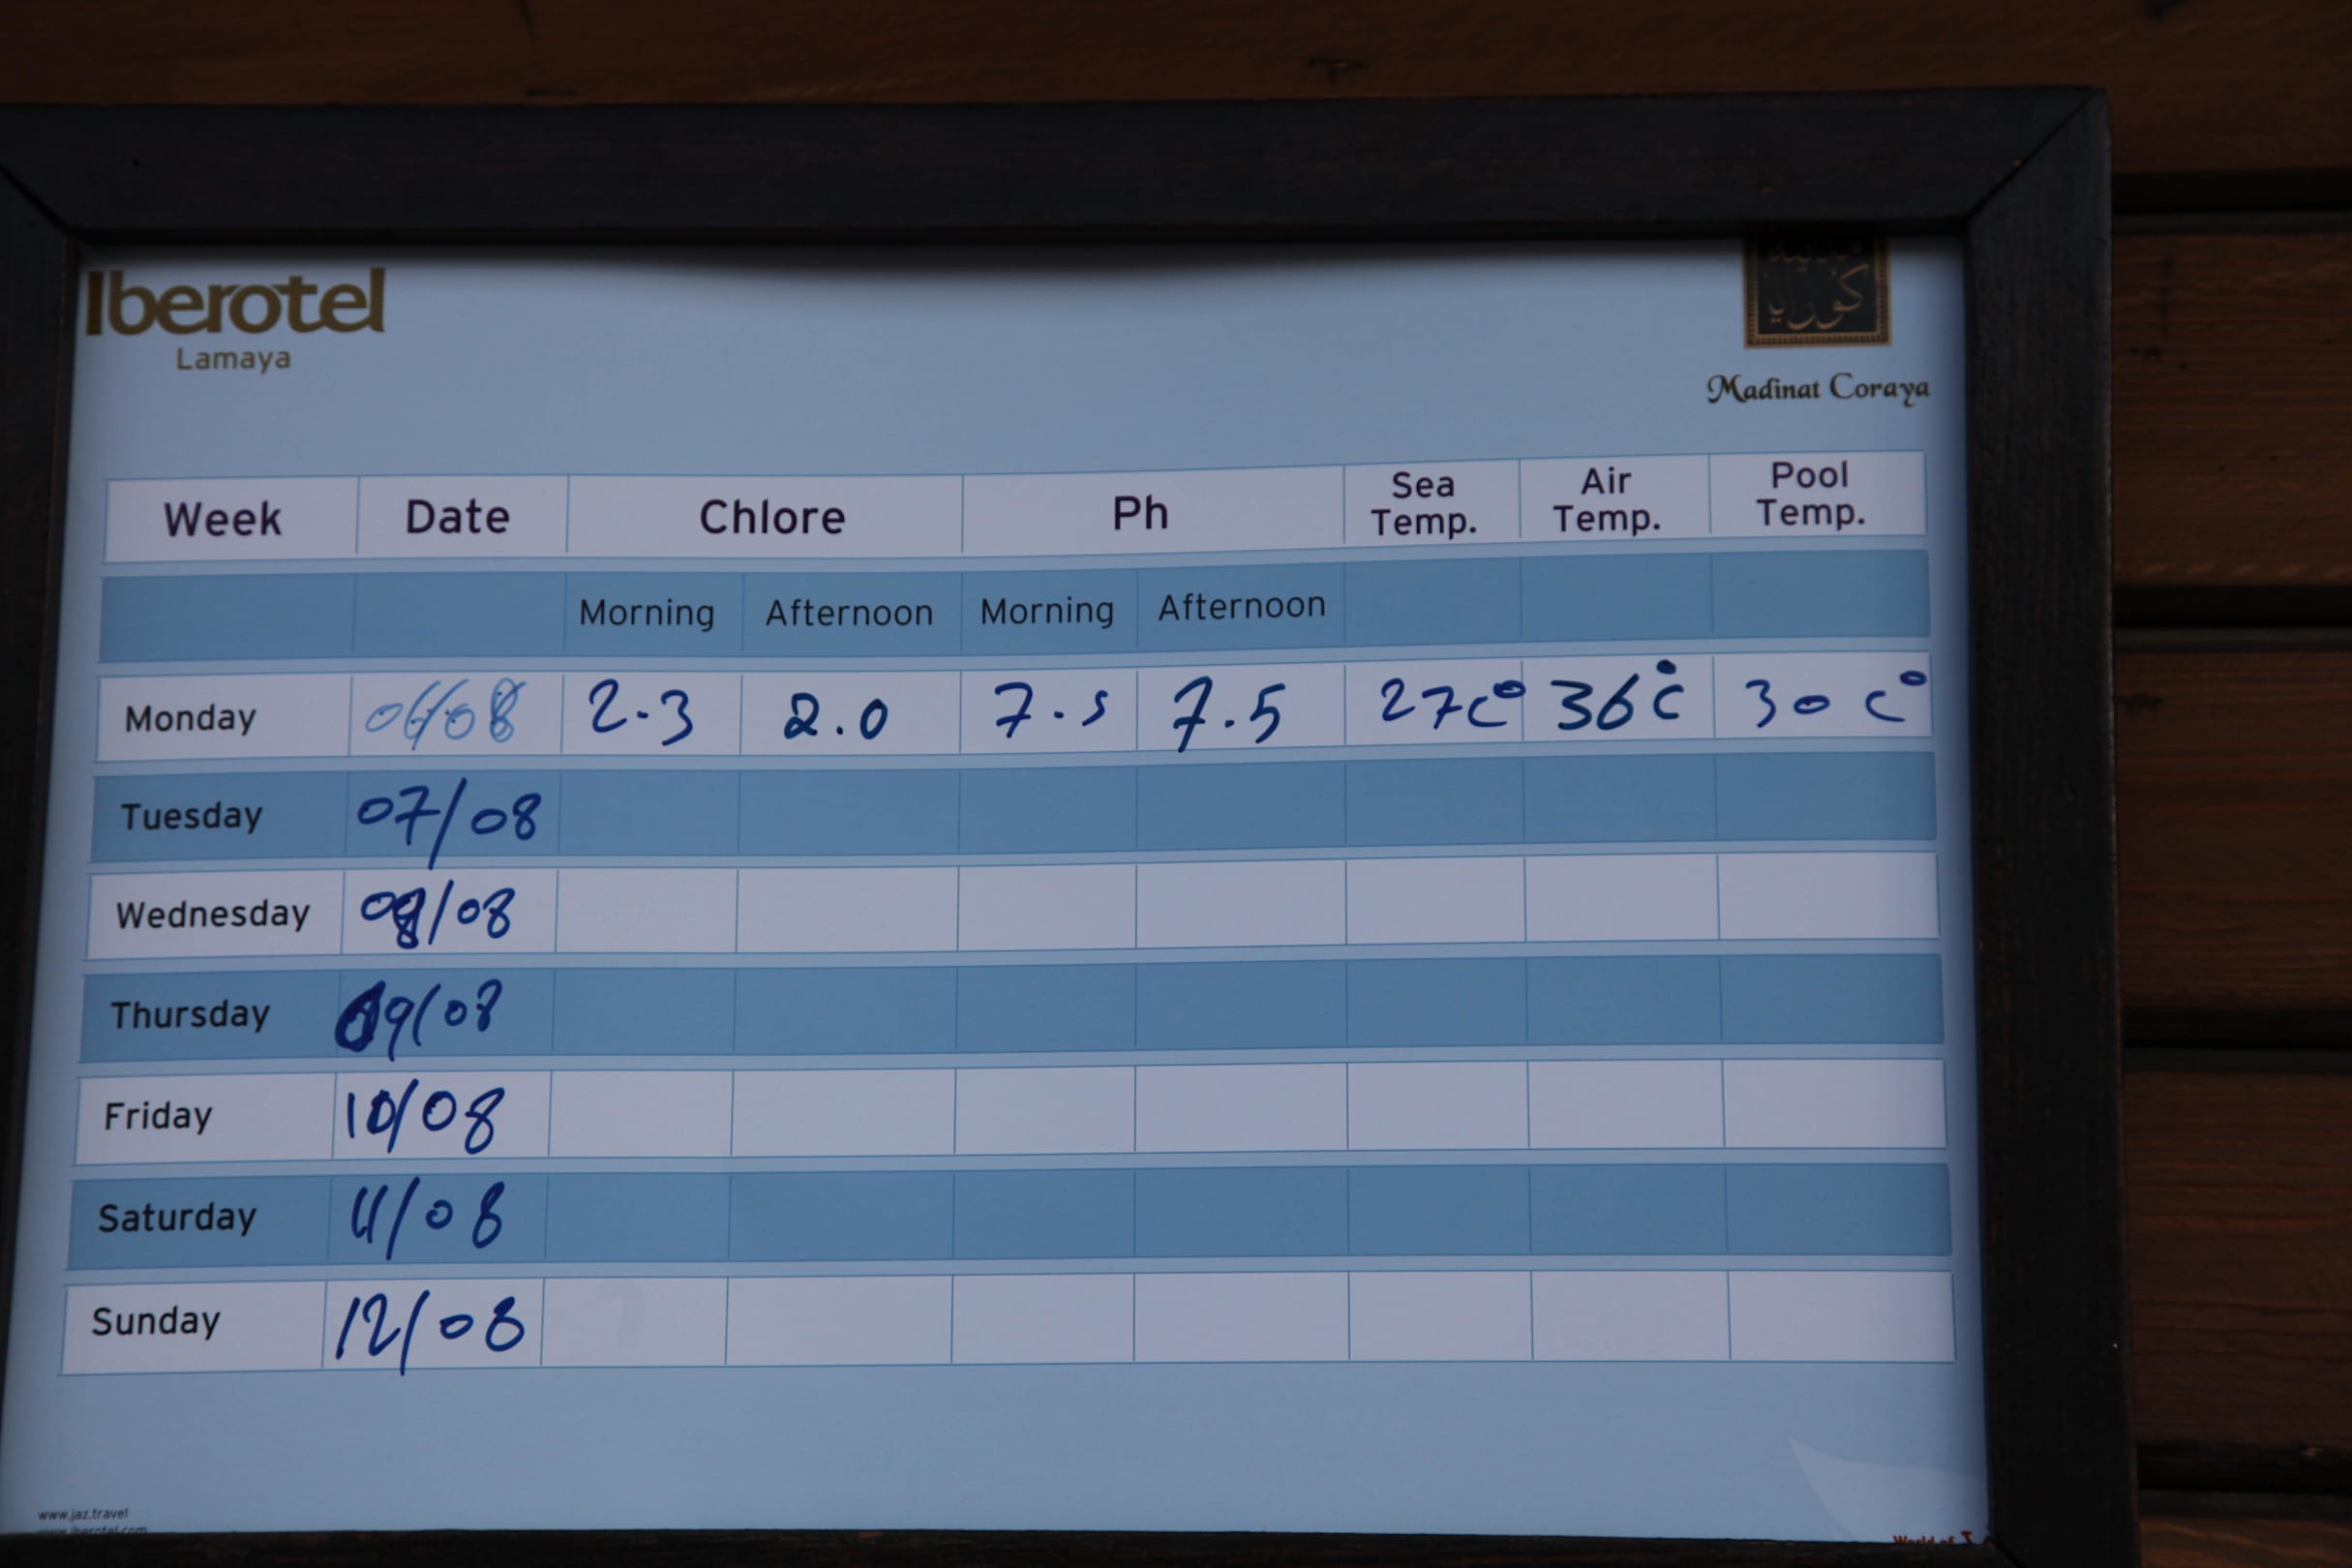 Iberotel
Lamaya
كورايا
Madinat Coraya
Week Date Chlore Ph Sea Temp. Air Temp. Pool Temp.
Morning Afternoon Morning Afternoon
Monday 06/08 2.3 2.0 7.5 7.5 27c° 36c° 30c°
Tuesday 07/08
Wednesday 08/08
Thursday 09/08
Friday 10/08
Saturday 11/08
Sunday 12/08
www.jaz.travel
www.iberotel.com
World of